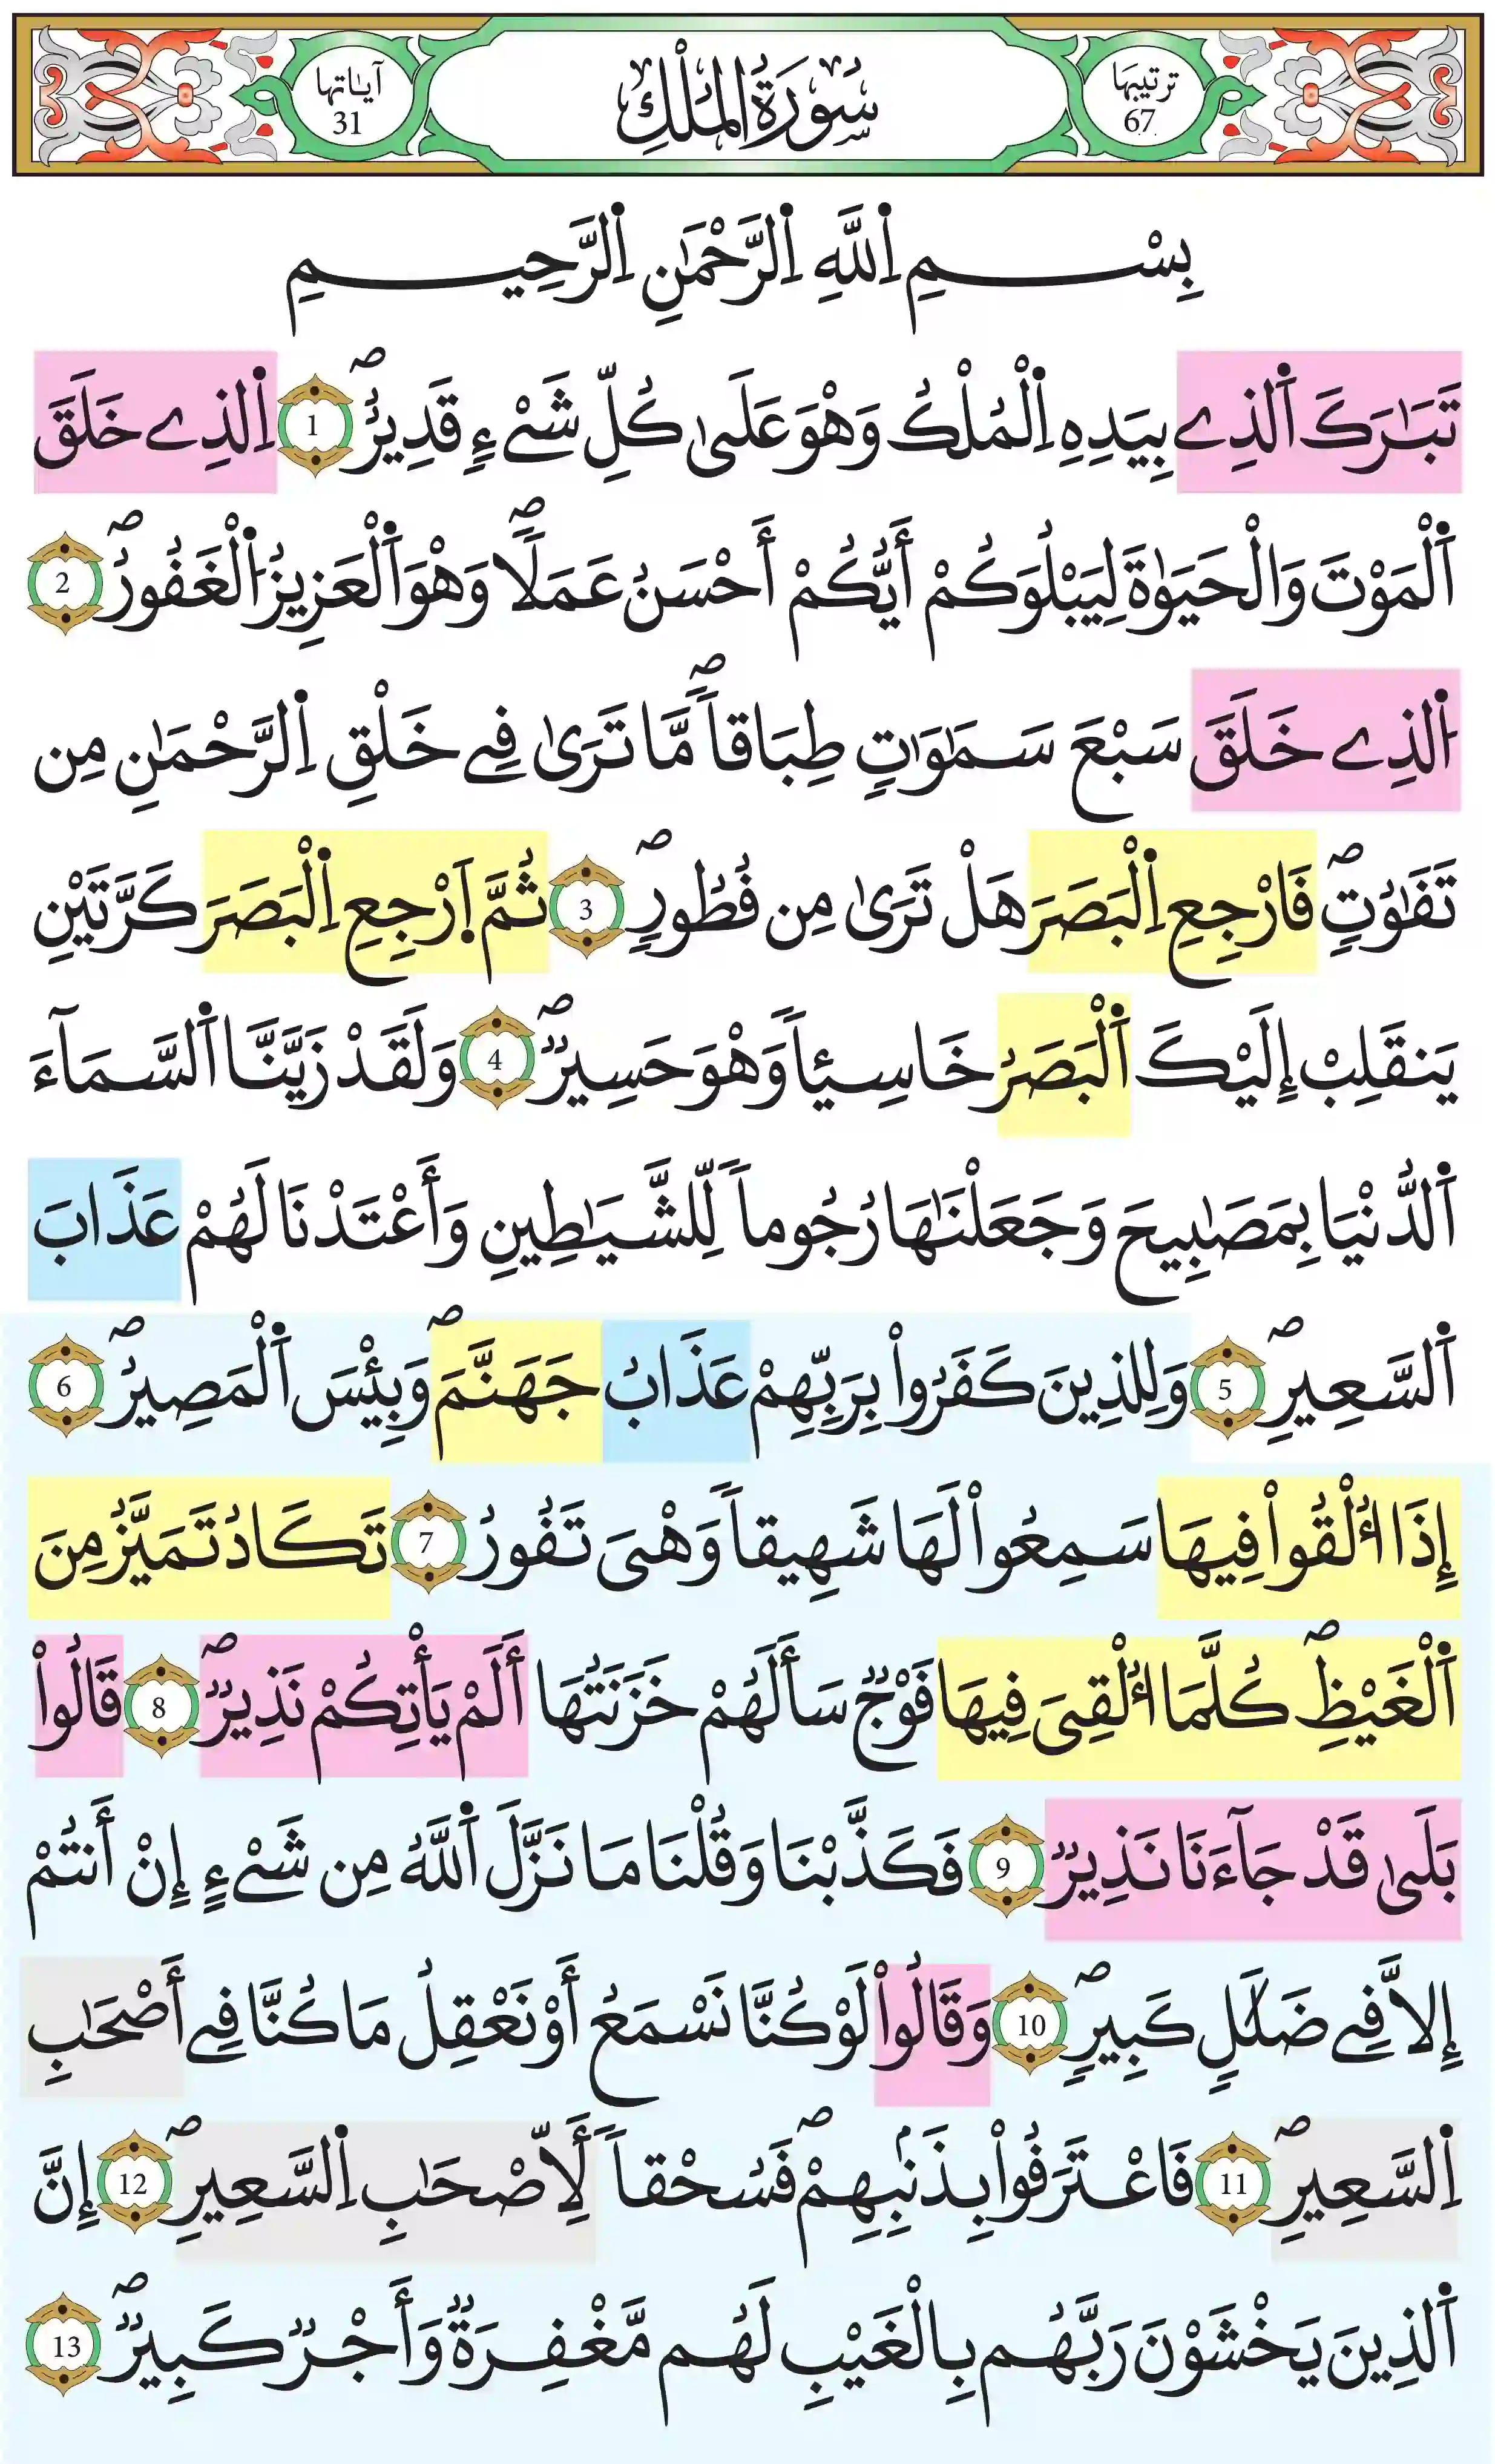 ترتيبها
67
سُورَةُ الْمُلْكِ
آياتها
31
بِسْمِ اِ۬للَّهِ اِ۬لرَّحْمَٰنِ اِ۬لرَّحِيمِ
تَبَٰرَكَ اَ۬لذِے بِيَدِهِ اِ۬لْمُلْكُ وَهْوَ عَلَىٰ كُلِّ شَےْءٖ قَدِيرٌۖ 1 اِ۬لذِے خَلَقَ
اَ۬لْمَوْتَ وَالْحَيَوٰةَ لِيَبْلُوَكُمْ أَيُّكُمْ أَحْسَنُ عَمَلاٗۖ وَهْوَ اَ۬لْعَزِيزُ اُ۬لْغَفُورُۖ 2
اُ۬لذِے خَلَقَ سَبْعَ سَمَٰوَٰتٖ طِبَاقاٗۖ مَّا تَرَىٰ فِے خَلْقِ اِ۬لرَّحْمَٰنِ مِن
تَفَٰوُتٖۖ فَارْجِعِ اِ۬لْبَصَرَ هَلْ تَرَىٰ مِن فُطُورٖۖ 3 ثُمَّ اَ۪رْجِعِ اِ۬لْبَصَرَ كَرَّتَيْنِ
يَنقَلِبْ إِلَيْكَ اَ۬لْبَصَرُ خَاسِئاٗ وَهْوَ حَسِيرٞۖ 4 وَلَقَدْ زَيَّنَّا اَ۬لسَّمَآءَ
اَ۬لدُّنْيَا بِمَصَٰبِيحَ وَجَعَلْنَٰهَا رُجُوماٗ لِّلشَّيَٰطِينِ وَأَعْتَدْنَا لَهُمْ عَذَابَ
اَ۬لسَّعِيرِۖ 5 وَلِلذِينَ كَفَرُواْ بِرَبِّهِمْ عَذَابُ جَهَنَّمَۖ وَبِئْسَ اَ۬لْمَصِيرُۖ 6
إِذَا أُلْقُواْ فِيهَا سَمِعُواْ لَهَا شَهِيقاٗ وَهْىَ تَفُورُ 7 تَكَادُ تَمَيَّزُ مِنَ
اَ۬لْغَيْظِۖ كُلَّمَا أُلْقِىَ فِيهَا فَوْجٞ سَأَلَهُمْ خَزَنَتُهَا أَلَمْ يَأْتِكُمْ نَذِيرٞۖ 8 قَالُواْ
بَلَىٰ قَدْ جَآءَنَا نَذِيرٞ 9 فَكَذَّبْنَا وَقُلْنَا مَا نَزَّلَ اَ۬للَّهُ مِن شَےْءٍ إِنْ أَنتُمْ
إِلاَّ فِے ضَلَٰلٖ كَبِيرٖۖ 10 وَقَالُواْ لَوْ كُنَّا نَسْمَعُ أَوْ نَعْقِلُ مَا كُنَّا فِے أَصْحَٰبِ
اِ۬لسَّعِيرِۖ 11 فَاعْتَرَفُواْ بِذَنۢبِهِمْۖ فَسُحْقاٗ لِّأَصْحَٰبِ اِ۬لسَّعِيرِۖ 12 إِنَّ
اَ۬لذِينَ يَخْشَوْنَ رَبَّهُم بِالْغَيْبِ لَهُم مَّغْفِرَةٞ وَأَجْرٞ كَبِيرٞۖ 13